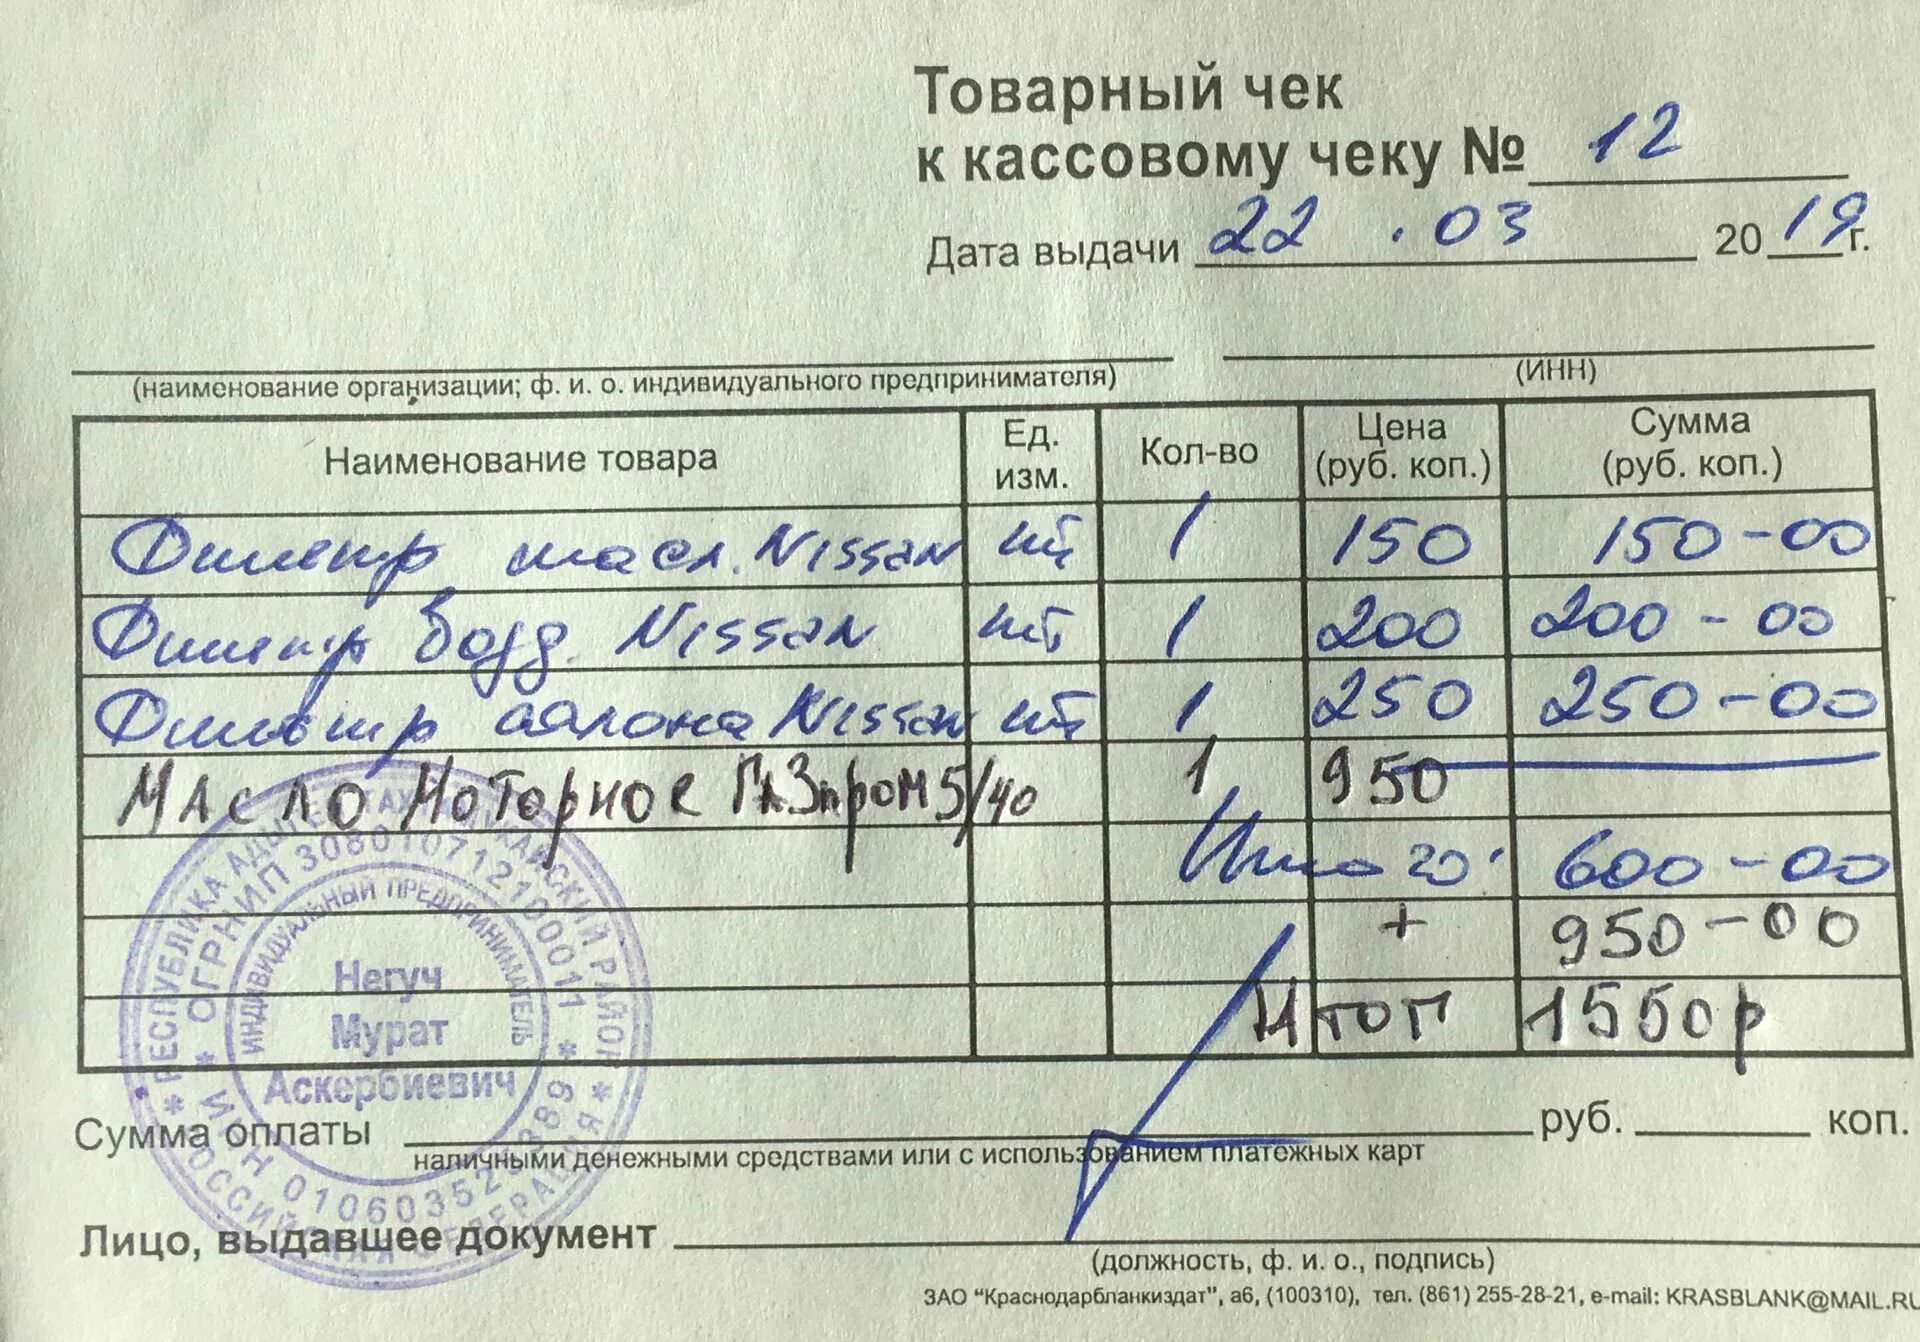 Товарный чек
к кассовому чеку № 12
Дата выдачи 22.03 2019г.
(наименование организации; ф. и. о. индивидуального предпринимателя) (ИНН)
Наименование товара Ед. изм. Кол-во Цена (руб. коп.) Сумма (руб. коп.)
Фильтр масл. Nissan шт 1 150 150-00
Фильтр возд. Nissan шт 1 200 200-00
Фильтр салона Nissan шт 1 250 250-00
Масло Моторное Газпром 5/40 1 950
Итого: 600-00
+ 950-00
Итог 1550р
РЕСПУБЛИКА АДЫГЕЯ ТАХТАМУКАЙСКИЙ РАЙОН
ОГРНИП 308010712100011
ИНДИВИДУАЛЬНЫЙ ПРЕДПРИНИМАТЕЛЬ
Негуч
Мурат
Аскербиевич
ИНН
РОССИЙСКАЯ ФЕДЕРАЦИЯ
Сумма оплаты руб. коп.
наличными денежными средствами или с использованием платежных карт
Лицо, выдавшее документ
(должность, ф. и. о., подпись)
ЗАО "Краснодарбланкиздат", а6, (100310), тел. (861) 255-28-21, e-mail: KRASBLANK@MAIL.RU